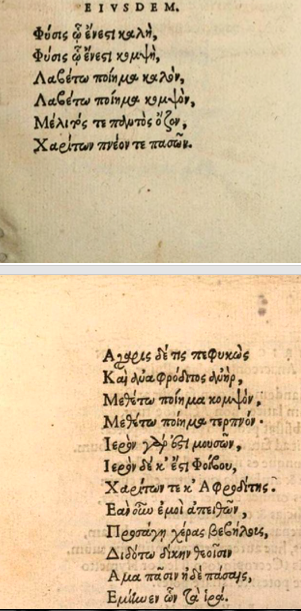 EIVSDEM.
Φύσις ᾧ ἔνεστι καλὴ,
Φύσις ᾧ ἔνεστι κομψὴ,
Λαβέτω ποίημα καλὸν,
Λαβέτω ποίημα κομψὸν,
Μέλιτός τε παντὸς ὄζον,
Χαρίτων πνέον τε πασῶν.
Αχαρις δέ τις πεφυκὼς
Καὶ ἀναφρόδιτος ἀνὴρ,
Μεθέτω ποίημα κομψὸν,
Μεθέτω ποίημα τερπνόν.
Ιερὸν γάρ ἐστι μουσῶν,
Ιερὸν δέ κ' ἔστι Φοίβου,
Χαρίτων τε κ' Αφροδίτης.
Εαν οὖν ἐμοὶ ἀπειθῶν,
Προσάγῃ χέρας βεβήλοις,
Διδότω δίκην θεοῖσιν
Αμα πᾶσιν ἠδὲ πάσαις,
Εμίαινεν ὧν τὰ ἱρά.